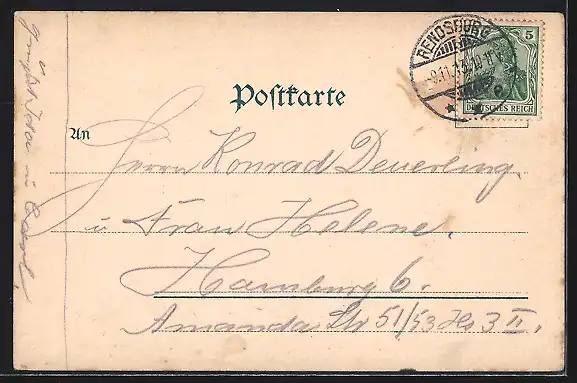 RENDSBURG
5
DEUTSCHES REICH
Postkarte
An
Herrn Konrad Deuerling
u Frau Helene.
Hamburg 6.
Amanda Str 51/53 Hs 3 II.
u